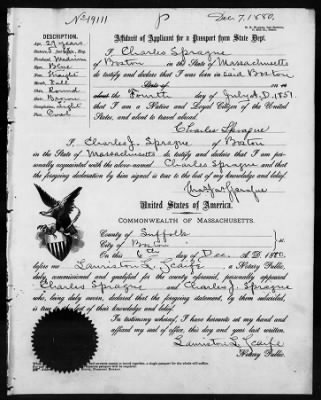 No 19111
P
Dec. 7, 1880.
DESCRIPTION.
Age, 29 years.
Forehead, Medium
Eyes, Blue
Nose, Straight
Mouth, Full
Chin, Round
Hair, Brown
Complexion, Light
Face, Oval
Affidavit of Applicant for a Passport from State Dept.
I Charles Sprague
of Boston in the State of Massachusetts
do testify and declare that I was born in said Boston
State of
about the Fourth day of July A.D. 1851.
that I am a Native and Loyal Citizen of the United
States, and about to travel abroad.
Charles Sprague
I, Charles J. Sprague of Boston
in the State of Massachusetts do testify and declare that I am per-
sonally acquainted with the above-named Charles Sprague and that
the foregoing declaration by him signed is true to the best of my knowledge and belief.
Chas Jas Sprague
United States of America.
COMMONWEALTH OF MASSACHUSETTS.
County of Suffolk
City of Boston
On this 6th day of Dec. A.D. 1880.
before me Lauriston L. Scaife, a Notary Public,
duly commissioned and qualified for the county aforesaid, personally appeared
Charles Sprague and Charles J. Sprague
who, being duly sworn, declared that the foregoing statement, by them subscribed,
is true to the best of their knowledge and belief.
In testimony whereof, I have hereunto set my hand and
affixed my seal of office, this day and year last written.
Lauriston L. Scaife
Notary Public.